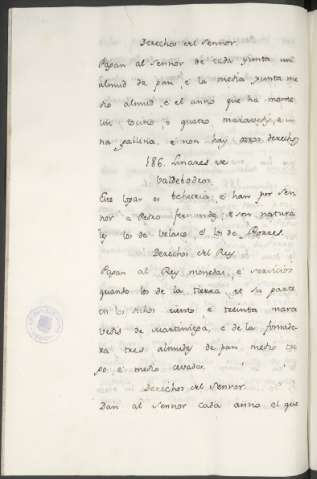 Derechos del Sennor
Pagan al Sennor de cada yunta un
almud de pan, e la media yunta me
dio almud, e el anno que ha monte
un tocino, o quatro maravedis, e u
na gallina, e non hay otros derechos
186. Linares de
Valdebodres
Este logar es behetria, e han por Sen
nor a Pedro Fernandez, e son natura
les los de Velasco, e los de Porres.
Derechos del Rey.
Pagan al Rey monedas, e servicios
quando los de la tierra, et su parte
en los dichos ciento e treinta mara
vedis de martiniega, e de la fonsade
ra tres almudes de pan medio tri
go e medio cevada.
Derechos del Sennor.
Dan al Sennor cada anno el que